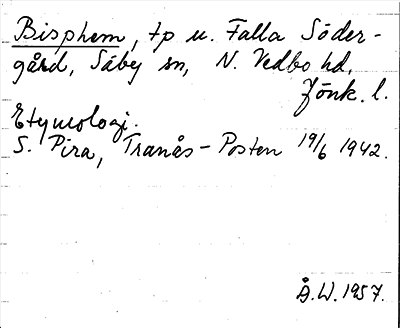 Bisphem, tp u. Falla Söder-
gård, Säby sn, N. Vedbo hd,
Jönk. l.
Etymologi.
S. Pira, Tranås-Posten 19/6 1942.
Å.W. 1957.